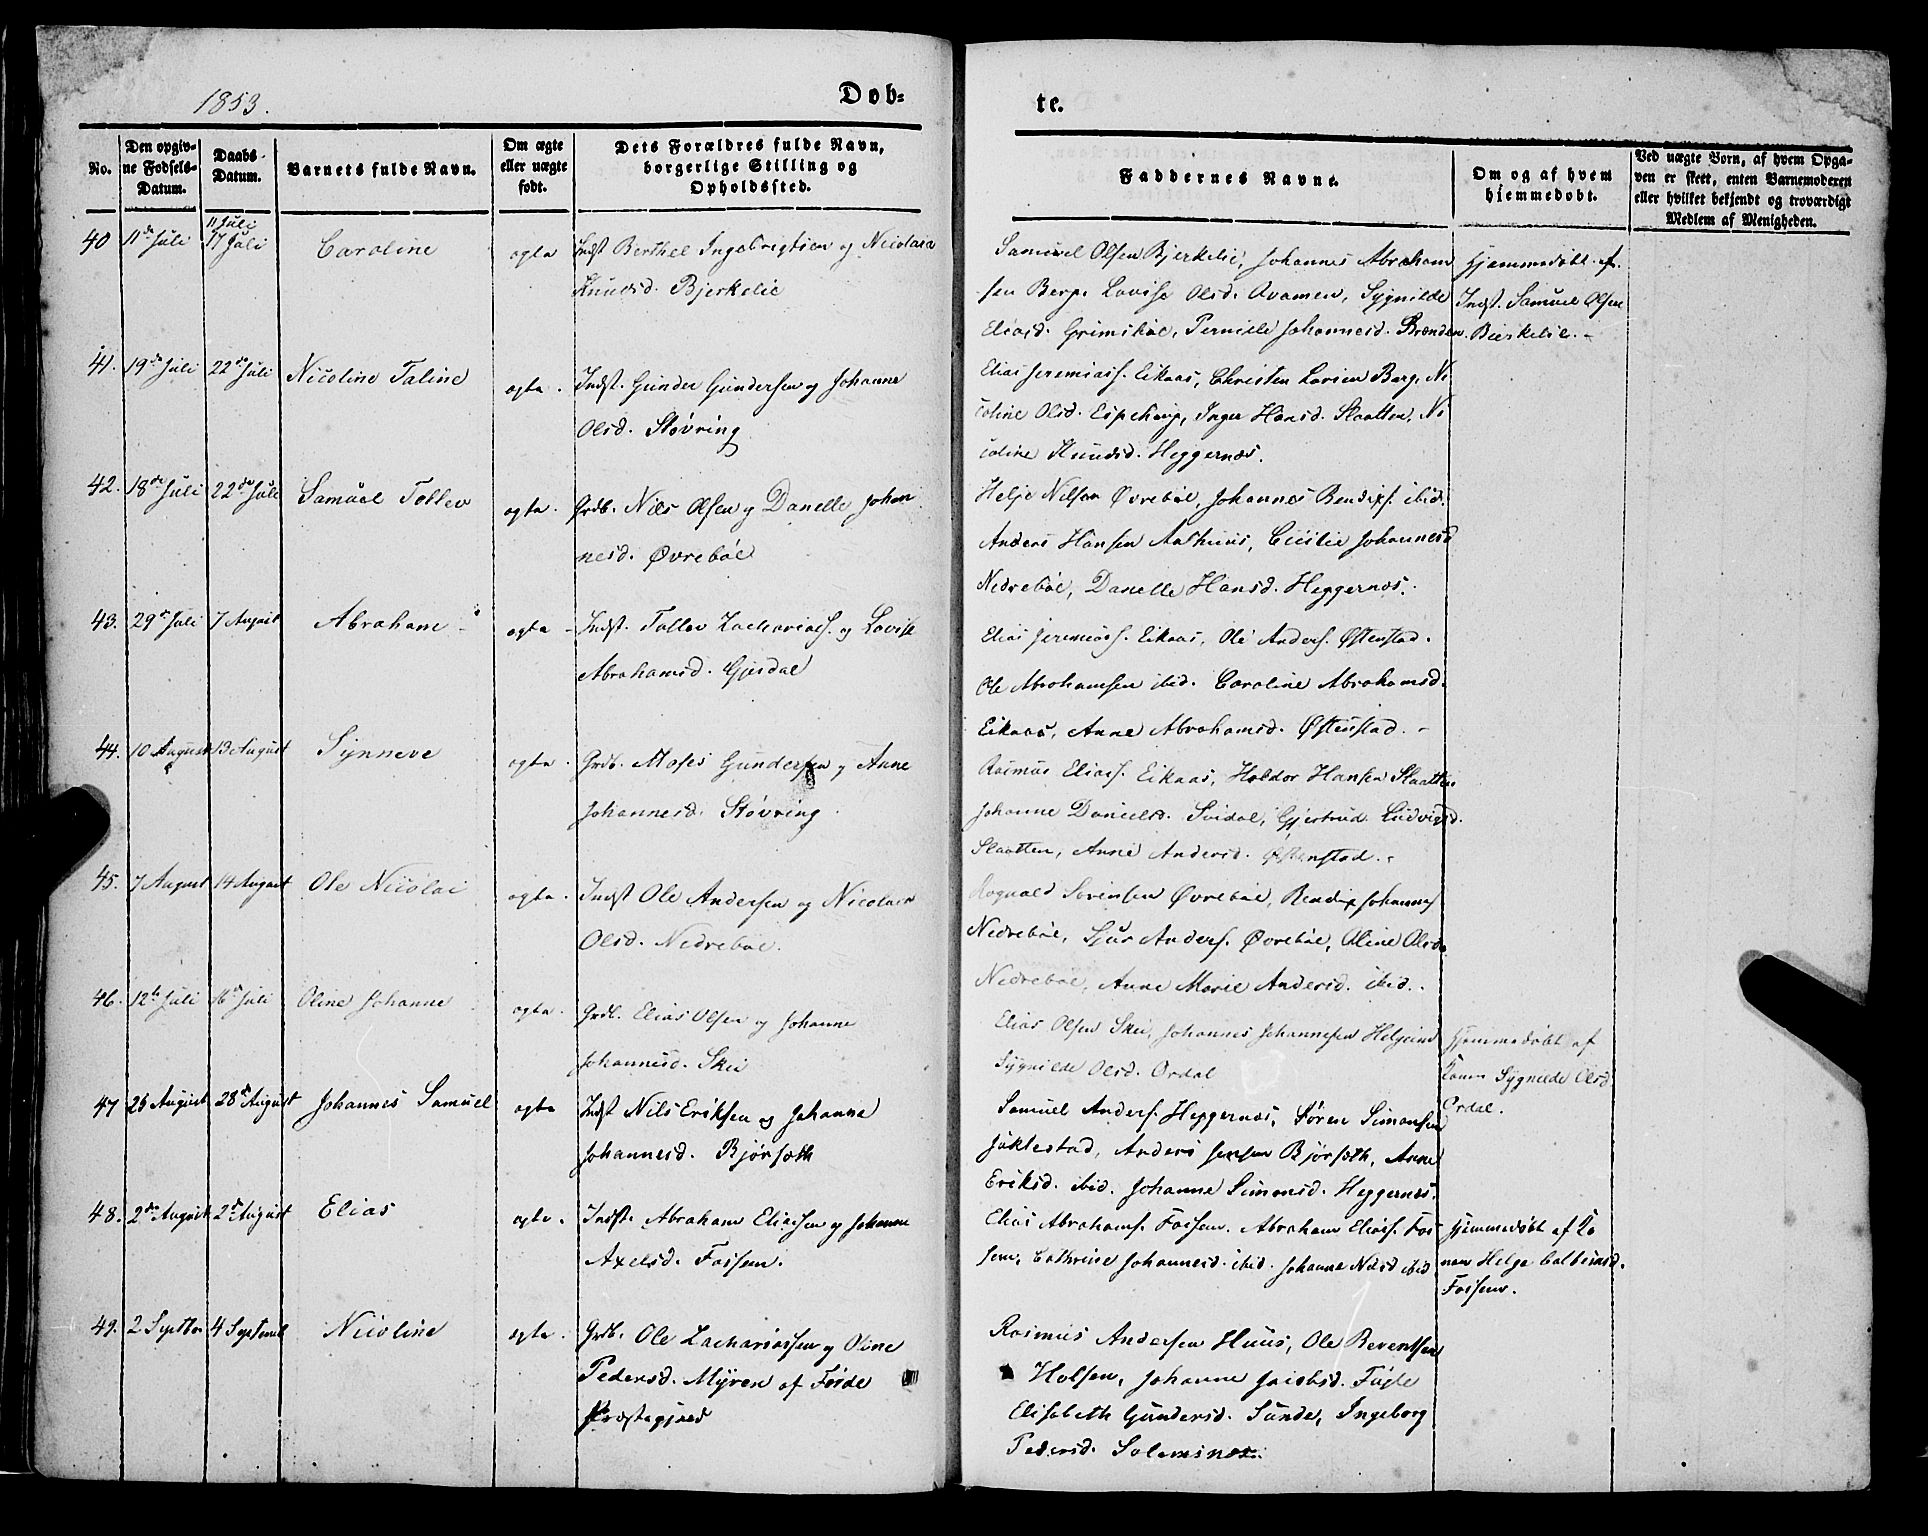 1853.
Døb=
te.
No.
Den opgiv-
ne Fødsels-
Datum.
Daabs-
Datum.
Barnets fulde Navn.
Om ægte
eller uægte
født.
Dets Forældres fulde Navn,
borgerlige Stilling og
Opholdssted.
Faddernes Navne.
Om og af hvem
hjemmedøbt.
Ved uægte Børn, af hvem Opga-
ven er skeet, enten Barnemoderen
eller hvilket bekjendt og troværdigt
Medlem af Menigheden.
40 11te Juli 11 Juli 17 Juli Caroline ægte Indst Berthel Ingebrigtsen og Nicolaia
Knudsd. Bjerkelie
Samuel Olsen Bjerkelie, Johannes Abraham
sen Berge Lovise Olsd. Avamen, Sygnilde
Eliasd. Grimsbøe, Pernille Johannesd. Brænden.
Hjemmedøbt af
Indst. Samuel Olsen
Bierkelie. -
41. 19de Juli 22de Juli Nicoline Taline ægte. Indst. Gunder Gundersen og Johanne
Olsd. Støvring
Elias Jeremiass. Eikaas, Christen Larsen Berg, Ni
coline Olsd. Espehaug, Inger Hansd. Slaatten, Ni
coline Knudsd. Heggernæs.
42. 18de Juli 22de Juli Samuel Tollev ægte. Grdb. Nils Olsen og Danelle Johan
nesd. Øvrebøe
Helje Nilsen Øvrebøe, Johannes Bendixs. ibid.
Anders Hansen Aarhuus, Cicilie Johannesd
Nedrebøe, Danelle Hansd. Heggernæs.
43. 29de Juli 7 August Abraham - ægte - Indst. Tollev Zachariass. og Lovise
Abrahamsd. Gjesdal
Elias Jeremiass. Eikaas, Ole Anders. Østenstad.
Ole Abrahamsen ibid. Caroline Abrahamsd.
Eikaas, Anne Abrahamsd. Østenstad. -
44. 10 August 13 August Synneve ægte. Grdb. Moses Gundersen og Anne
Johannesd. Støvring.
Rasmus Eliass. Eikaas, Haldor Hansen Slaatten
Johanne Danielsd. Svidal, Gjertrud Ludvigsd.
Slaatten, Anne Andersd. Østenstad. -
45. 7 August 14 August Ole Nicolai ægte. Indst Ole Andersen og Nicolaia
Olsd. Nedrebøe.
Rognald Sørensen Øvrebøe, Bendix Johannes
Nedrebøe, Sjur Anders. Øvrebøe, Oline Olsd.
Nedrebøe, Anne Marie Andersd. ibid.
46. 12te Juli 16de Juli Oline Johanne ægte. Grdb. Elias Olsen og Johanne
Johannesd. Skei
Elias Olsen Skei, Johannes Johannesen Helgeim
Sygnilde Olsd. Ordal
Hjemmedøbt af
Konen Sygnilde Olsd
Ordal.
47 25 August 28de August Johannes Samuel ægte Indst Nils Eriksen og Johanne
Johannesd. Bjørsæth
Samuel Anders. Heggernæs, Søren Simonsen
Jøklestad, Anders Jensen Bjørsæth, Anne
Eriksd. ibid. Johanne Simonsd. Heggernæs.
48. 2de August 2de August Elias ægte. Indst. Abraham Eliassen og Johanne
Axelsd. Fossem.
Elias Abrahams. Fossem. Abraham Eliass. Fos
sem, Cathrine Johannesd. ibid. Johanne Nilsd ibid
Hjemmedøbt af Ko
nen Helge
Fossem.
49. 2 Septber 4 Septemb Nicoline ægte. Grdb. Ole Zachariassen og Oline
Pedersd. Myren af Førde
Præstegjeld
Rasmus Andersen Huus, Ole Berentsen
Holsen, Johanne Jacobsd. Fugle
Elisabeth Gundersd. Sunde, Ingeborg
Pedersd. Solemsnæs.